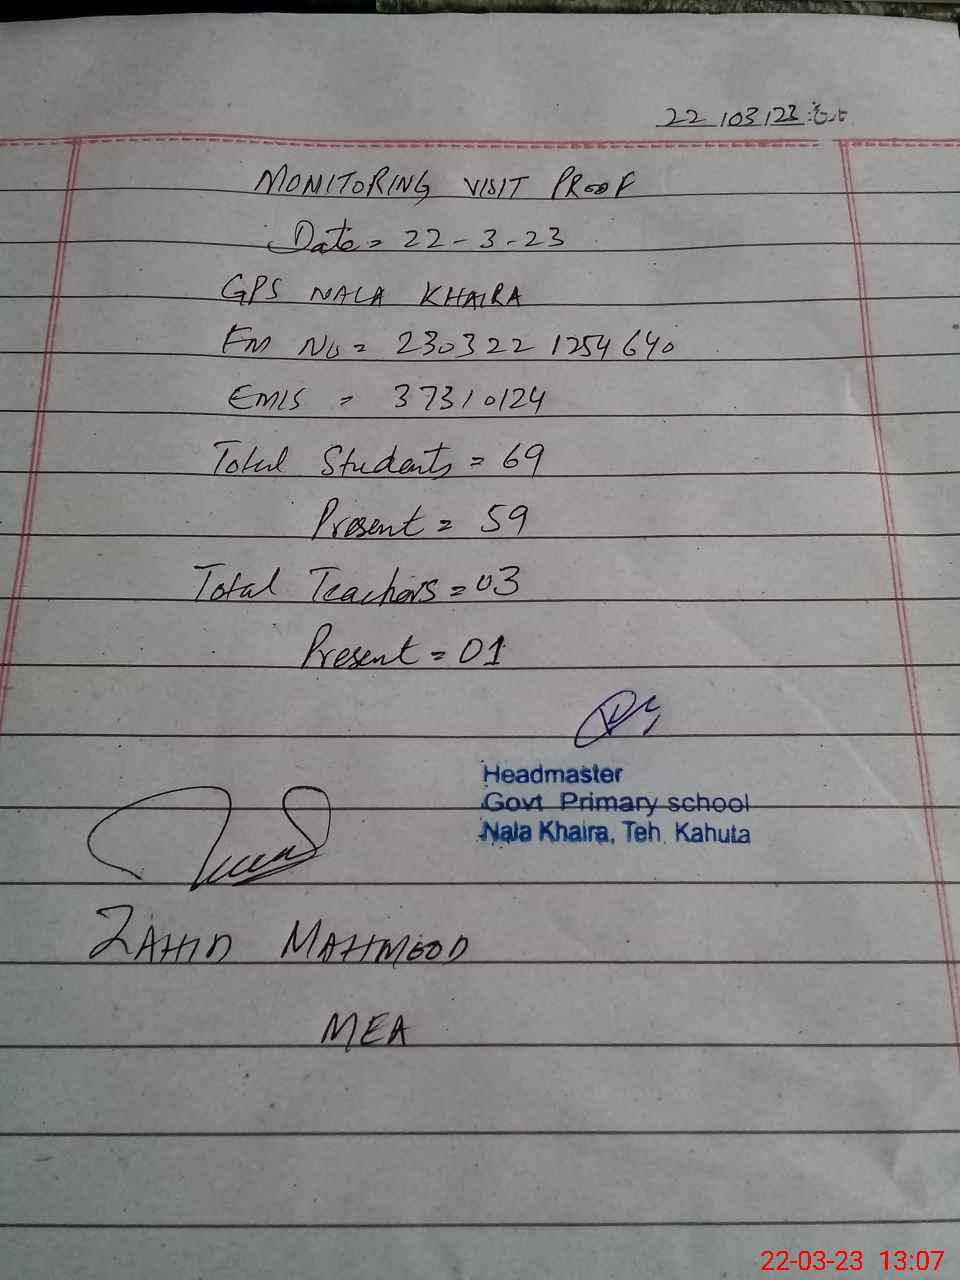 22/03/23 تاریخ:
MONITORING VISIT PROOF
Date = 22-3-23
GPS NALA KHAIRA
FM No = 230322 1254640
EMIS = 37310124
Total Students = 69
Present = 59
Total Teachers = 03
Present = 01
Headmaster
Govt Primary school
Nala Khaira, Teh. Kahuta
ZAHID MAHMOOD
MEA
22-03-23 13:07